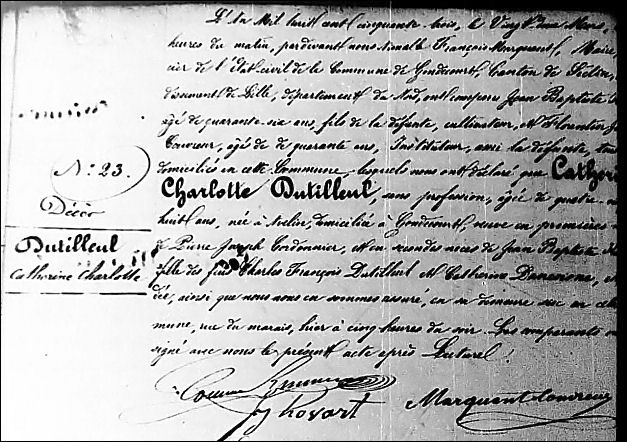 L'An Mil huit cent cinquante trois, le Vingt deux Mars,
heures du matin, pardevant nous Aimable François Marquant, Maire
cier de l'État civil de la Commune de Gondecourt, Canton de Seclin,
dissement de Lille, département du Nord, ont comparu Jean Baptiste
âgé de quarante six ans, fils de la défunte, cultivateur, et Florentin
Couvreur, âgé de quarante ans, Instituteur, ami la défunte, tous
N.o 23.
domiciliés en cette Commune, lesquels nous ont déclaré que Cather
Charlotte Dutilleul, sans profession, âgée de quatre
Décès
huit ans, née à domiciliée à Gondecourt, veuve en premières
Dutilleul
Catherine Charlotte
de Pierre Joseph Cordonnier, et en secondes noces de Jean Baptiste
fille des feus Charles François Dutilleul et Catherine
dée, ainsi que nous nous en sommes assuré, en sa demeure sise en cette
mune, rue du marais, hier à cinq heures du soir. Les comparants
signé avec nous le présent acte après Lecture.
Marquant Couvreur